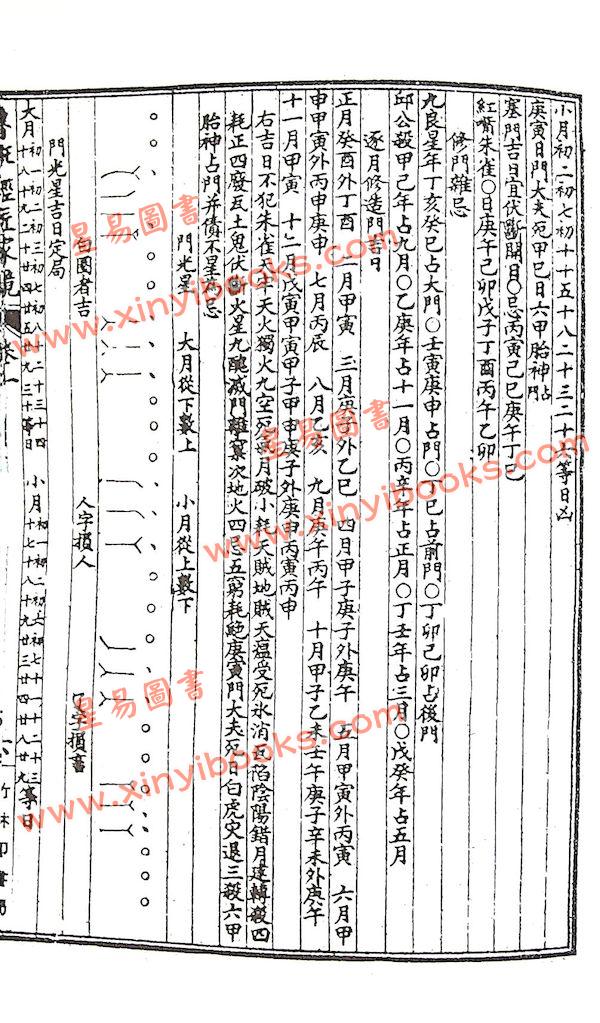 小月初二初七初十十五十八二十三二十七等日凶
庚寅日門大夫死甲巳日六甲胎神占門
塞門吉日宜伏斷閉日〇忌丙寅己巳庚午丁巳
紅嘴朱雀〇日庚午己卯戊子丁酉丙午乙卯
修門雜忌
九良星年丁亥癸巳占大門〇壬寅庚申占門〇丁巳占前門〇丁卯己卯占後門
邱公殺甲己年占九月〇乙庚年占十一月〇丙辛年占正月〇丁壬年占三月〇戊癸年占五月
逐月修造門吉日
正月癸酉外丁酉 二月甲寅 三月庚子外乙巳 四月甲子庚子外庚午 五月甲寅外丙寅 六月甲
申甲寅外丙申庚申 七月丙辰 八月乙亥 九月庚午丙午 十月甲子乙未壬午庚子辛未外庚午
十一月甲寅 十二月戊寅甲寅甲子甲申庚子外庚申丙寅丙申
右吉日不犯朱雀天牢天火獨火九空死氣月破小耗天賊地賊天瘟受死氷消瓦陷陰陽錯月建轉殺四
耗正四廢瓦土鬼伏火星九醜滅門離窠次地火四忌五窮耗絶庚寅門大夫死日白虎灾退三殺六甲
胎神占門并債不星為忌
門光星 大月從下數上 小月從上數下
白圈者吉 人字損人 丫字損畜
門光星吉日定局
大月初一初二初三初七初八十二十三十四十八十九二十廿四廿五廿九三十等日 小月初一初二初六初七十一十二十三十七十八十九廿三廿四廿八廿九等日
竹林印書局
星易圖書
www.xinyibooks.com
星易圖書
www.xinyibooks.com
星易圖書
www.xinyibooks.com